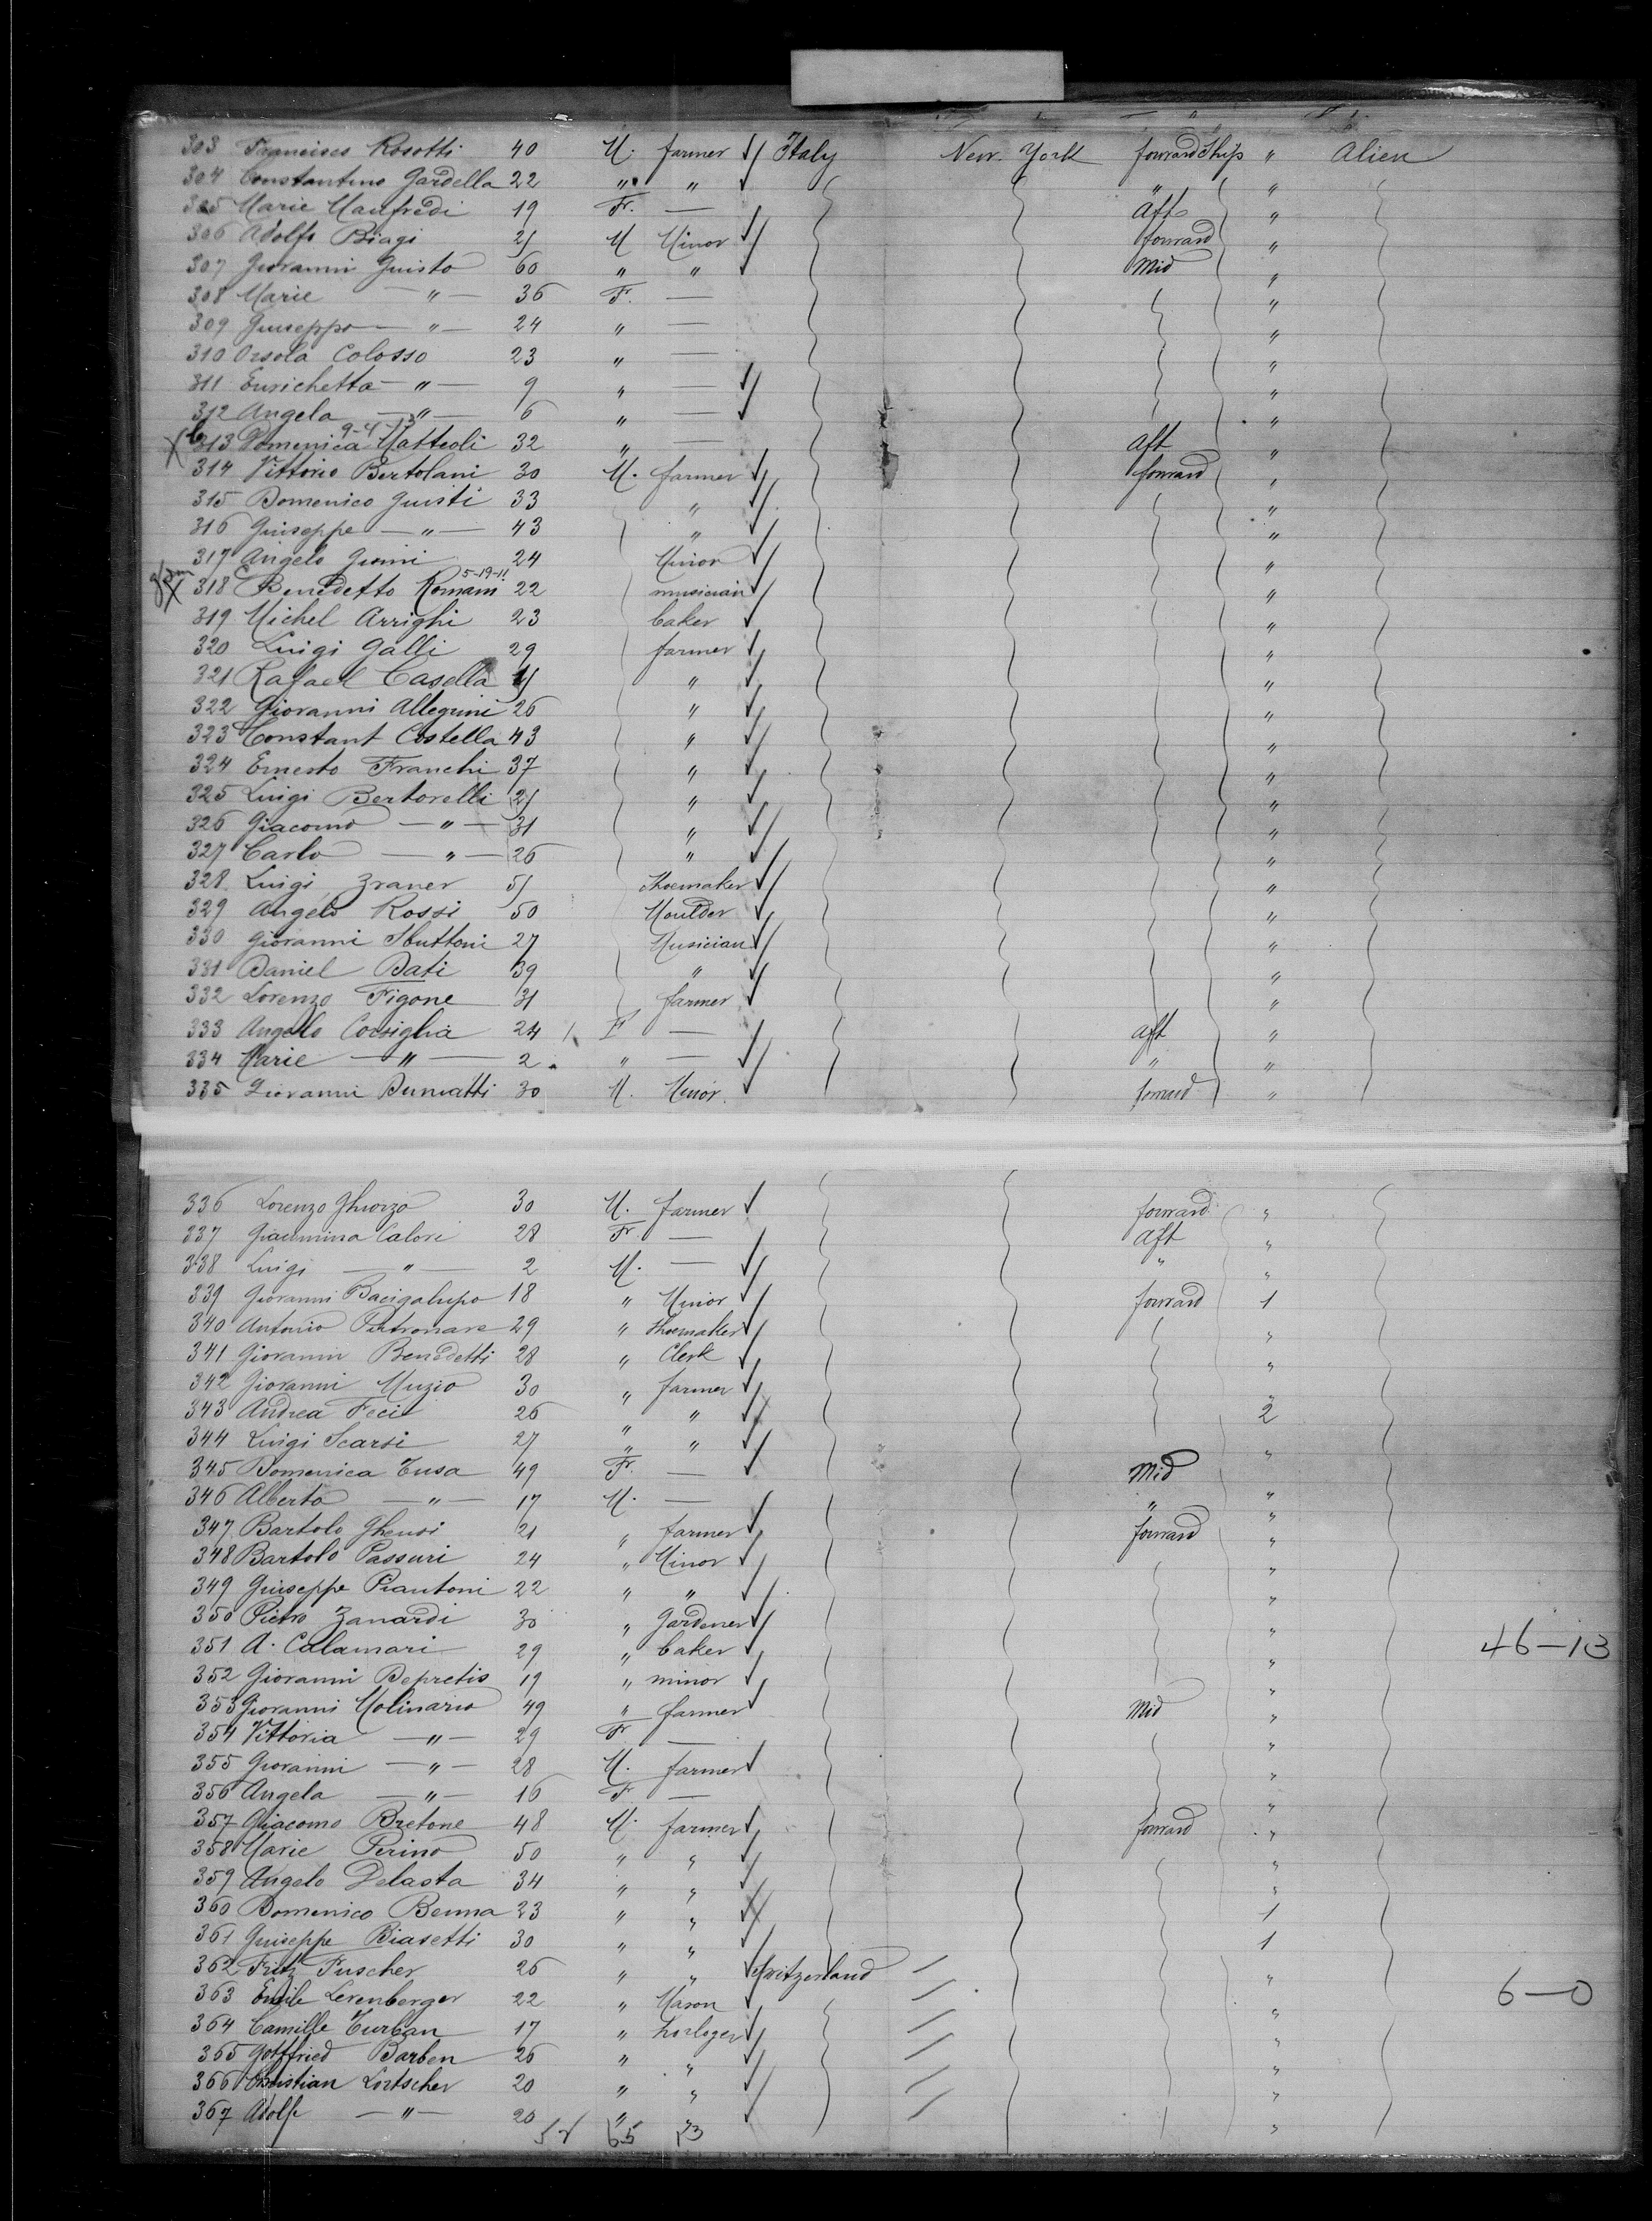 303 Francisco Rosotti 40 M. farmer Italy New York forward Ship " Alien
304 Constantino Gardella 22 " " " "
305 Marie Manfredi 19 Fr. — Aft "
306 Adolfo Biagi 21 M Minor forward "
307 Giovanni Guisto 60 " " Mid "
308 Marie — " — 36 F. — "
309 Guiseppe — " — 24 " — "
310 Orsola Colosso 23 " — "
311 Enrichetta — " — 9 " — "
312 Angela — " — 6 " — "
9-4-13
313 Domenica Matteoli 32 " — aft "
314 Vittorio Bertolani 30 M. farmer forward "
315 Domenico Guisti 33 " "
316 Giuseppe — " — 43 " "
317 Angelo Giomi 24 Minor "
5-19-11
318 Benedetto Romani 22 musician "
319 Michel Arrighi 23 baker "
320 Luigi Galli 29 farmer "
321 Rafael Casella " "
322 Giovanni Allegrini 26 " "
323 Constant Costella 43 " "
324 Ernesto Franchi 37 " "
325 Luigi Bertorelli 21 " "
326 Giacomo — " — 31 " "
327 Carlo — " — 26 " "
328 Luigi Zraner 51 Shoemaker "
329 Angelo Rossi 50 Moulder "
330 Giovanni Sbuttoni 27 Musician "
331 Daniel Dati 39 " "
332 Lorenzo Figone 31 farmer "
333 Angelo Corsiglia 24 F — aft "
334 Marie — " — 2 " — " "
335 Giovanni 30 M. Minor forward "
336 Lorenzo Ghiorzo 30 M. farmer forward "
337 Giacomina Calori 28 Fr. — Aft "
338 Luigi — " — 2 M. — " "
339 Giovanni Bacigalupo 18 " Minor forward 1
340 Antonio 29 " Shoemaker "
341 Giovanni Benedetti 28 " Clerk "
342 Giovanni Muzio 30 " farmer "
343 Andrea Feci 26 " " 2
344 Luigi Scarsi 27 " " "
345 Domenica Cusa 49 Fr. — Mid "
346 Alberto — " — 17 M. — " "
347 Bartolo Ghensi 21 " farmer forward "
348 Bartolo Passuri 24 " Minor "
349 Giuseppe Piantoni 22 " " "
350 Pietro Zanardi 30 " Gardener "
351 A. Calamari 29 " baker " 46-13
352 Giovanni Depretis 19 " minor "
353 Giovanni Molinario 49 " farmer Mid "
354 Vittoria — " — 29 Fr — "
355 Giovanni — " — 28 M. farmer "
356 Angela — " — 16 F. — "
357 Giacomo Bretone 48 M. farmer forward "
358 Marie Perino 50 " " "
359 Angelo Delasta 34 " " "
360 Domenico Benna 23 " " 1
361 Guiseppe Biasetti 30 " " 1
362 Fritz Fuscher 26 " " Switzerland "
363 Emile Lerenberger 22 " Mason " 6-0
364 Camille Turban 17 " horloger "
365 Gottfried Barben 26 " " "
366 Christian Lortscher 20 " " "
367 Adolf — " — 20 " " "
52 65 13